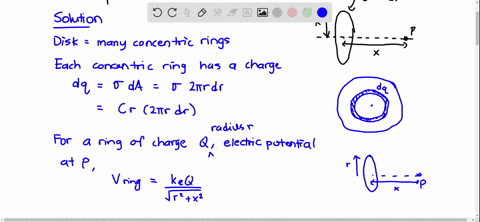 Solution
Disk = many concentric rings
Each concentric ring has a charge
dq = σ dA = σ 2πrdr
= Cr (2πr dr)
radius r
For a ring of charge Q, ^ electric potential
at P,
V ring = keQ / √(r² + x²)
P
x
dq
r
x
P